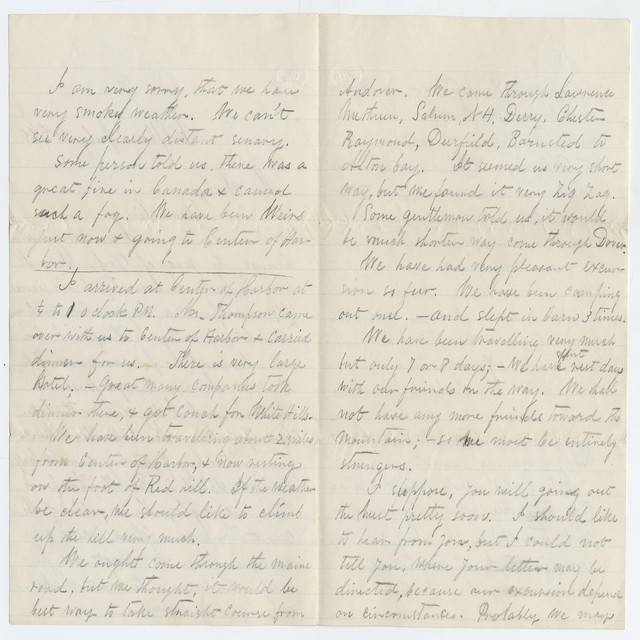 I am very sorry, that we have
very smoky weather. We can't
see very clearly distant senary.
Some person told us, there was a
great fire in Canada & caused
such a fog. We have been Weirs
just now & going to Center of Har-
bor.
I arrived at Center of Harbor at
¼ to 1 o clock P.M. Mr. Thompson came
over with us to Center of Harbor & Carried
dinner for us. There is very large
Hotel. – Great many companies took
dinner there, & got Coach for White Hills.
We have been travelling about 2 miles
from Center of Harbor, & now resting
on the foot of Red hill. If the weather
be clear, we should like to climb
up the hill very much.
We ought come through the maine
road, but we thought, it would be
best way to take straight course from
Andover. We came through Lawrence
Methuen, Salum, N.H. Derry, Chester
Raymond, Deerfild, Barnsted to
Alton bay. It seemed us very short
way, but we found it very Zig Zag.
Some gentleman told us, it would
be much shorter way come through Dover.
We have had very pleasant excur-
sion so feer. We have been camping
out one. – and slept in barn 3 times.
We have been travelling very much
but only 7 or 8 days; – We have rest days
with our friends on the way. We shall
not have any more friends toward the
Mountains; – so we most be entirely
strangers.
I suppose, you will going out
the west pretty soon. I should like
to hear from you, but I could not
till you, where your letter may be
directed, because our excursion depend
on circumstances. Probably we may